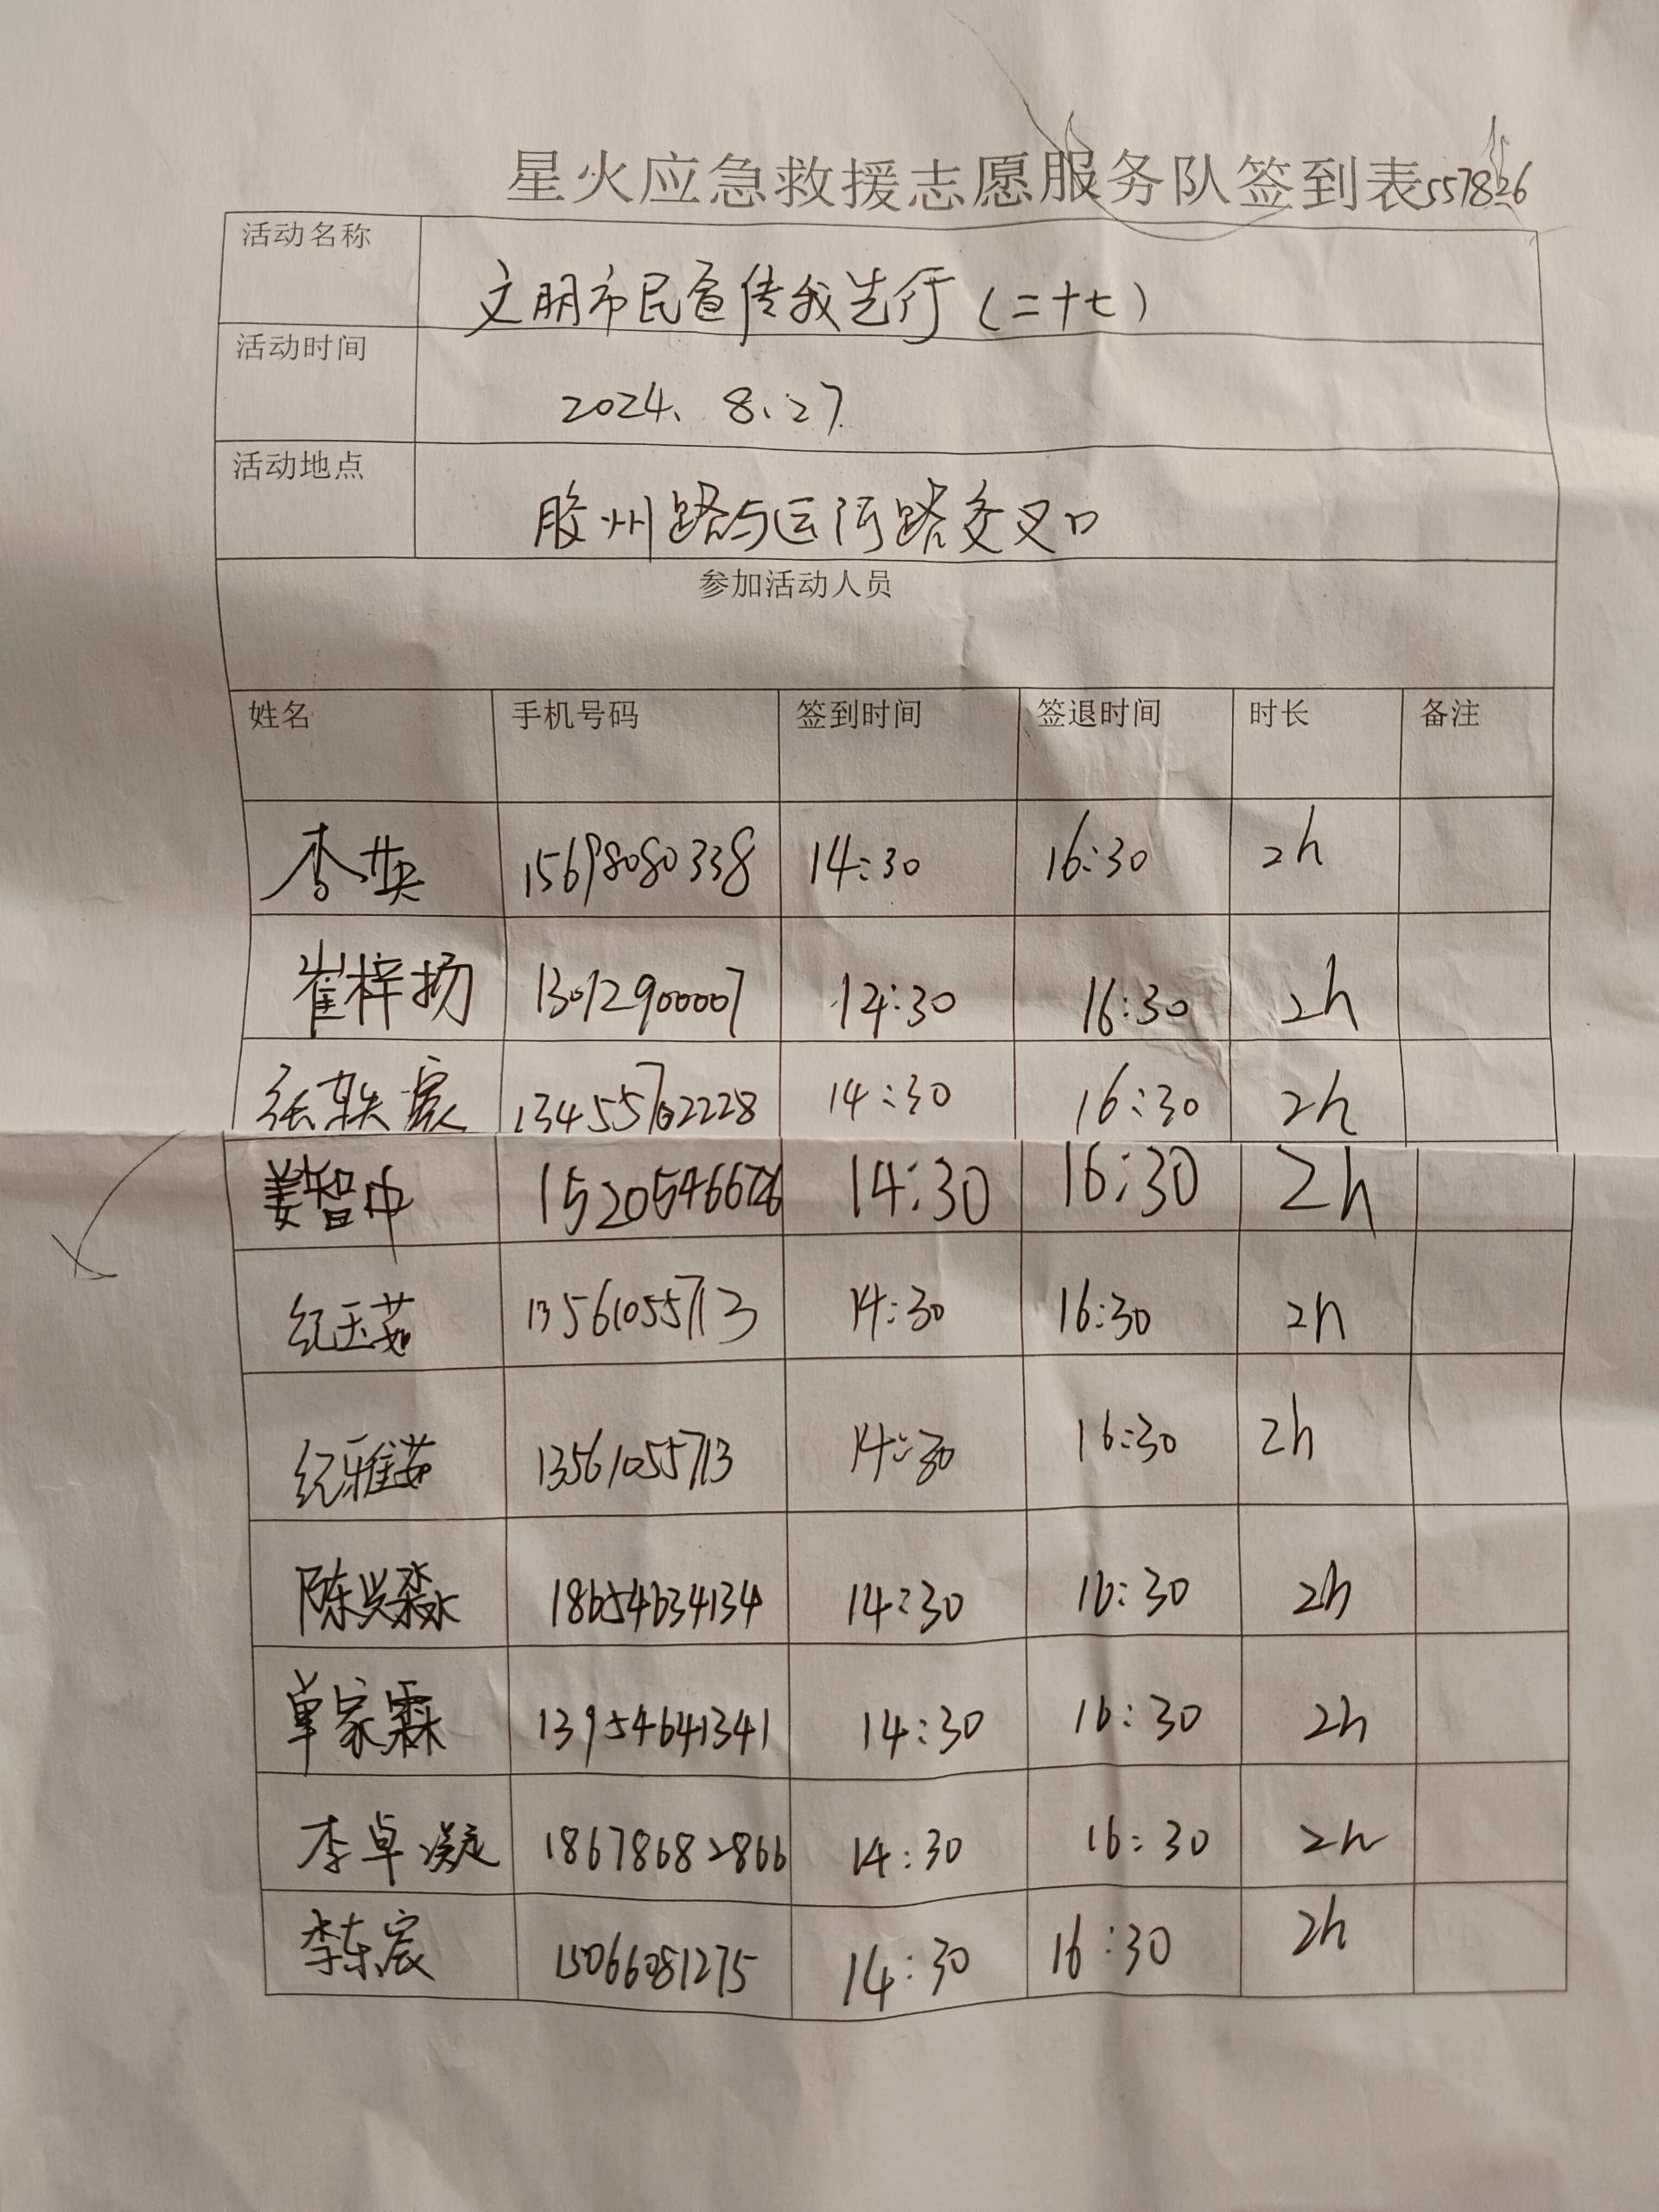 星火应急救援志愿服务队签到表557826
活动名称 文明市民宣传我先行（二十七）
活动时间 2024、8、27
活动地点 胶州路与运河路交叉口
参加活动人员
姓名 手机号码 签到时间 签退时间 时长 备注
李英 15698080338 14:30 16:30 2h
崔梓扬 13012900007 14:30 16:30 2h
张轶宸 13455702228 14:30 16:30 2h
姜智中 14:30 16:30 2h
纪玉茹 13561055713 14:30 16:30 2h
纪雅茹 13561055713 14:30 16:30 2h
陈兴淼 18654634134 14:30 16:30 2h
单家霖 13954641341 14:30 16:30 2h
李卓凝 18678682866 14:30 16:30 2h
李东宸 15066081275 14:30 16:30 2h